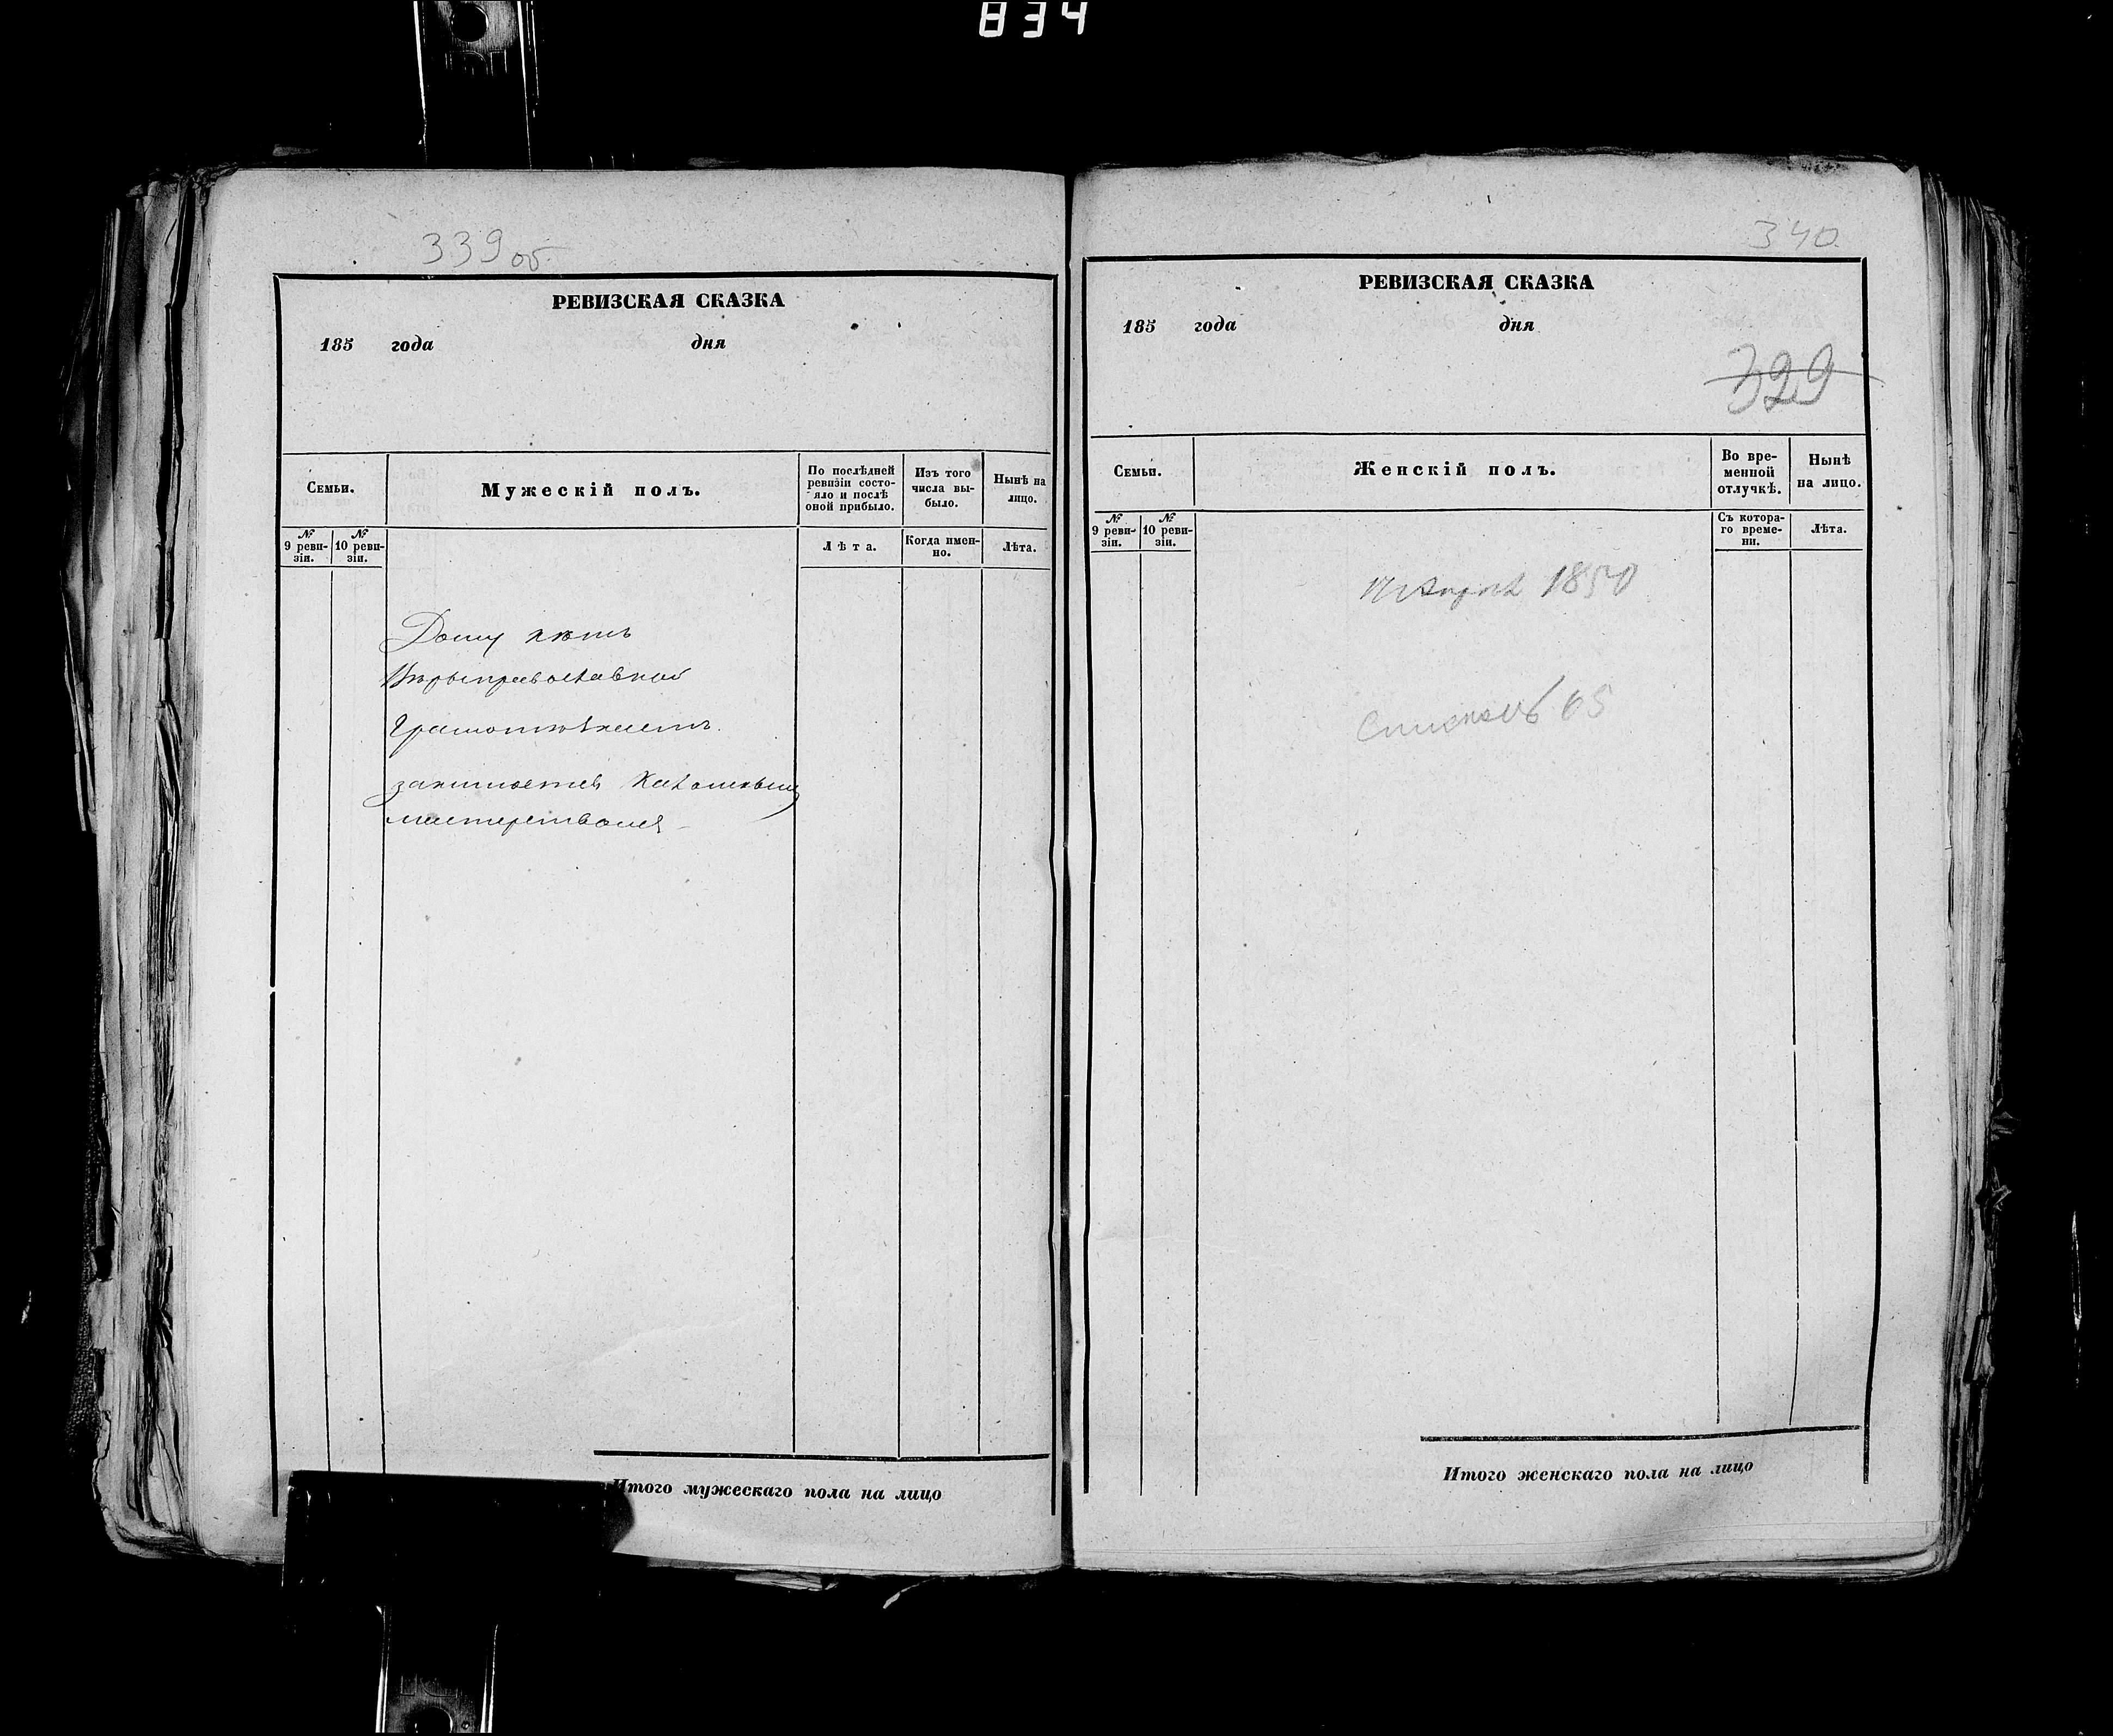 834
339 об.
РЕВИЗСКАЯ СКАЗКА
185 года дня
Семьи.
Мужескій полъ.
По послѣдней
ревизіи состо-
яло и послѣ
оной прибыло.
Изъ того
числа вы-
было.
Нынѣ на
лицо.
№
9 реви-
зіи.
№
10 реви-
зіи.
Лѣта.
Когда имен-
но.
Лѣта.
Дому нѣтъ
Вѣры православной
Грамотѣ знаетъ
занимается
мастерствомъ
Итого мужескаго пола на лицо
340
РЕВИЗСКАЯ СКАЗКА
185 года дня
329
Семьи.
Женскій полъ.
Во вре-
менной
отлучкѣ.
Нынѣ
на лицо.
№
9 реви-
зіи.
№
10 реви-
зіи.
Съ котора-
го време-
ни.
Лѣта.
1850
65
Итого женскаго пола на лицо